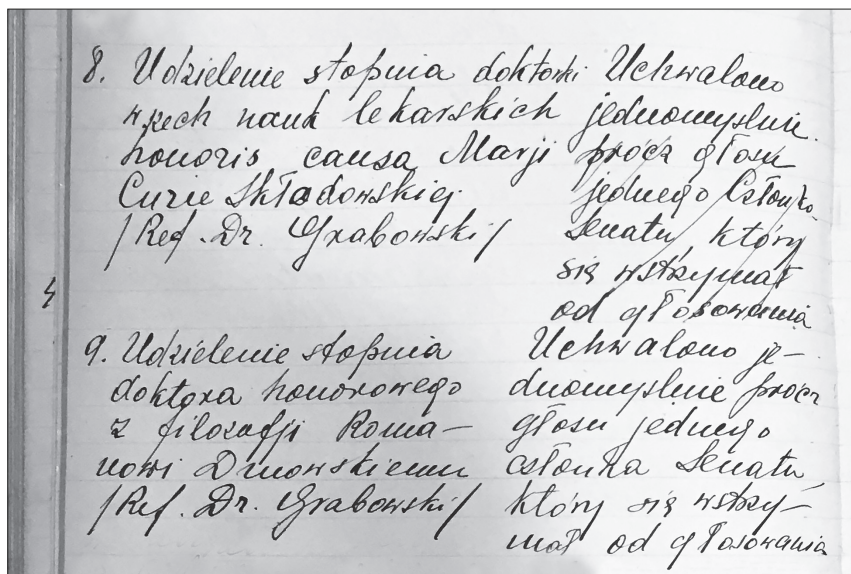 8. Udzielenie stopnia doktorki
wszech nauk lekarskich
honoris causa Marji
Curie Skłodowskiej.
/Ref. Dr. Grabowski/
Uchwalono
jednomyślnie
prócz głosu
jednego Członka
Senatu, który
się wstrzymał
od głosowania
9. Udzielenie stopnia
doktora honorowego
z filozofji Roma-
nowi Dmowskiemu
/Ref. Dr. Grabowski/
Uchwalono je-
dnomyślnie prócz
głosu jednego
członka Senatu,
który się wstrzy-
mał od głosowania